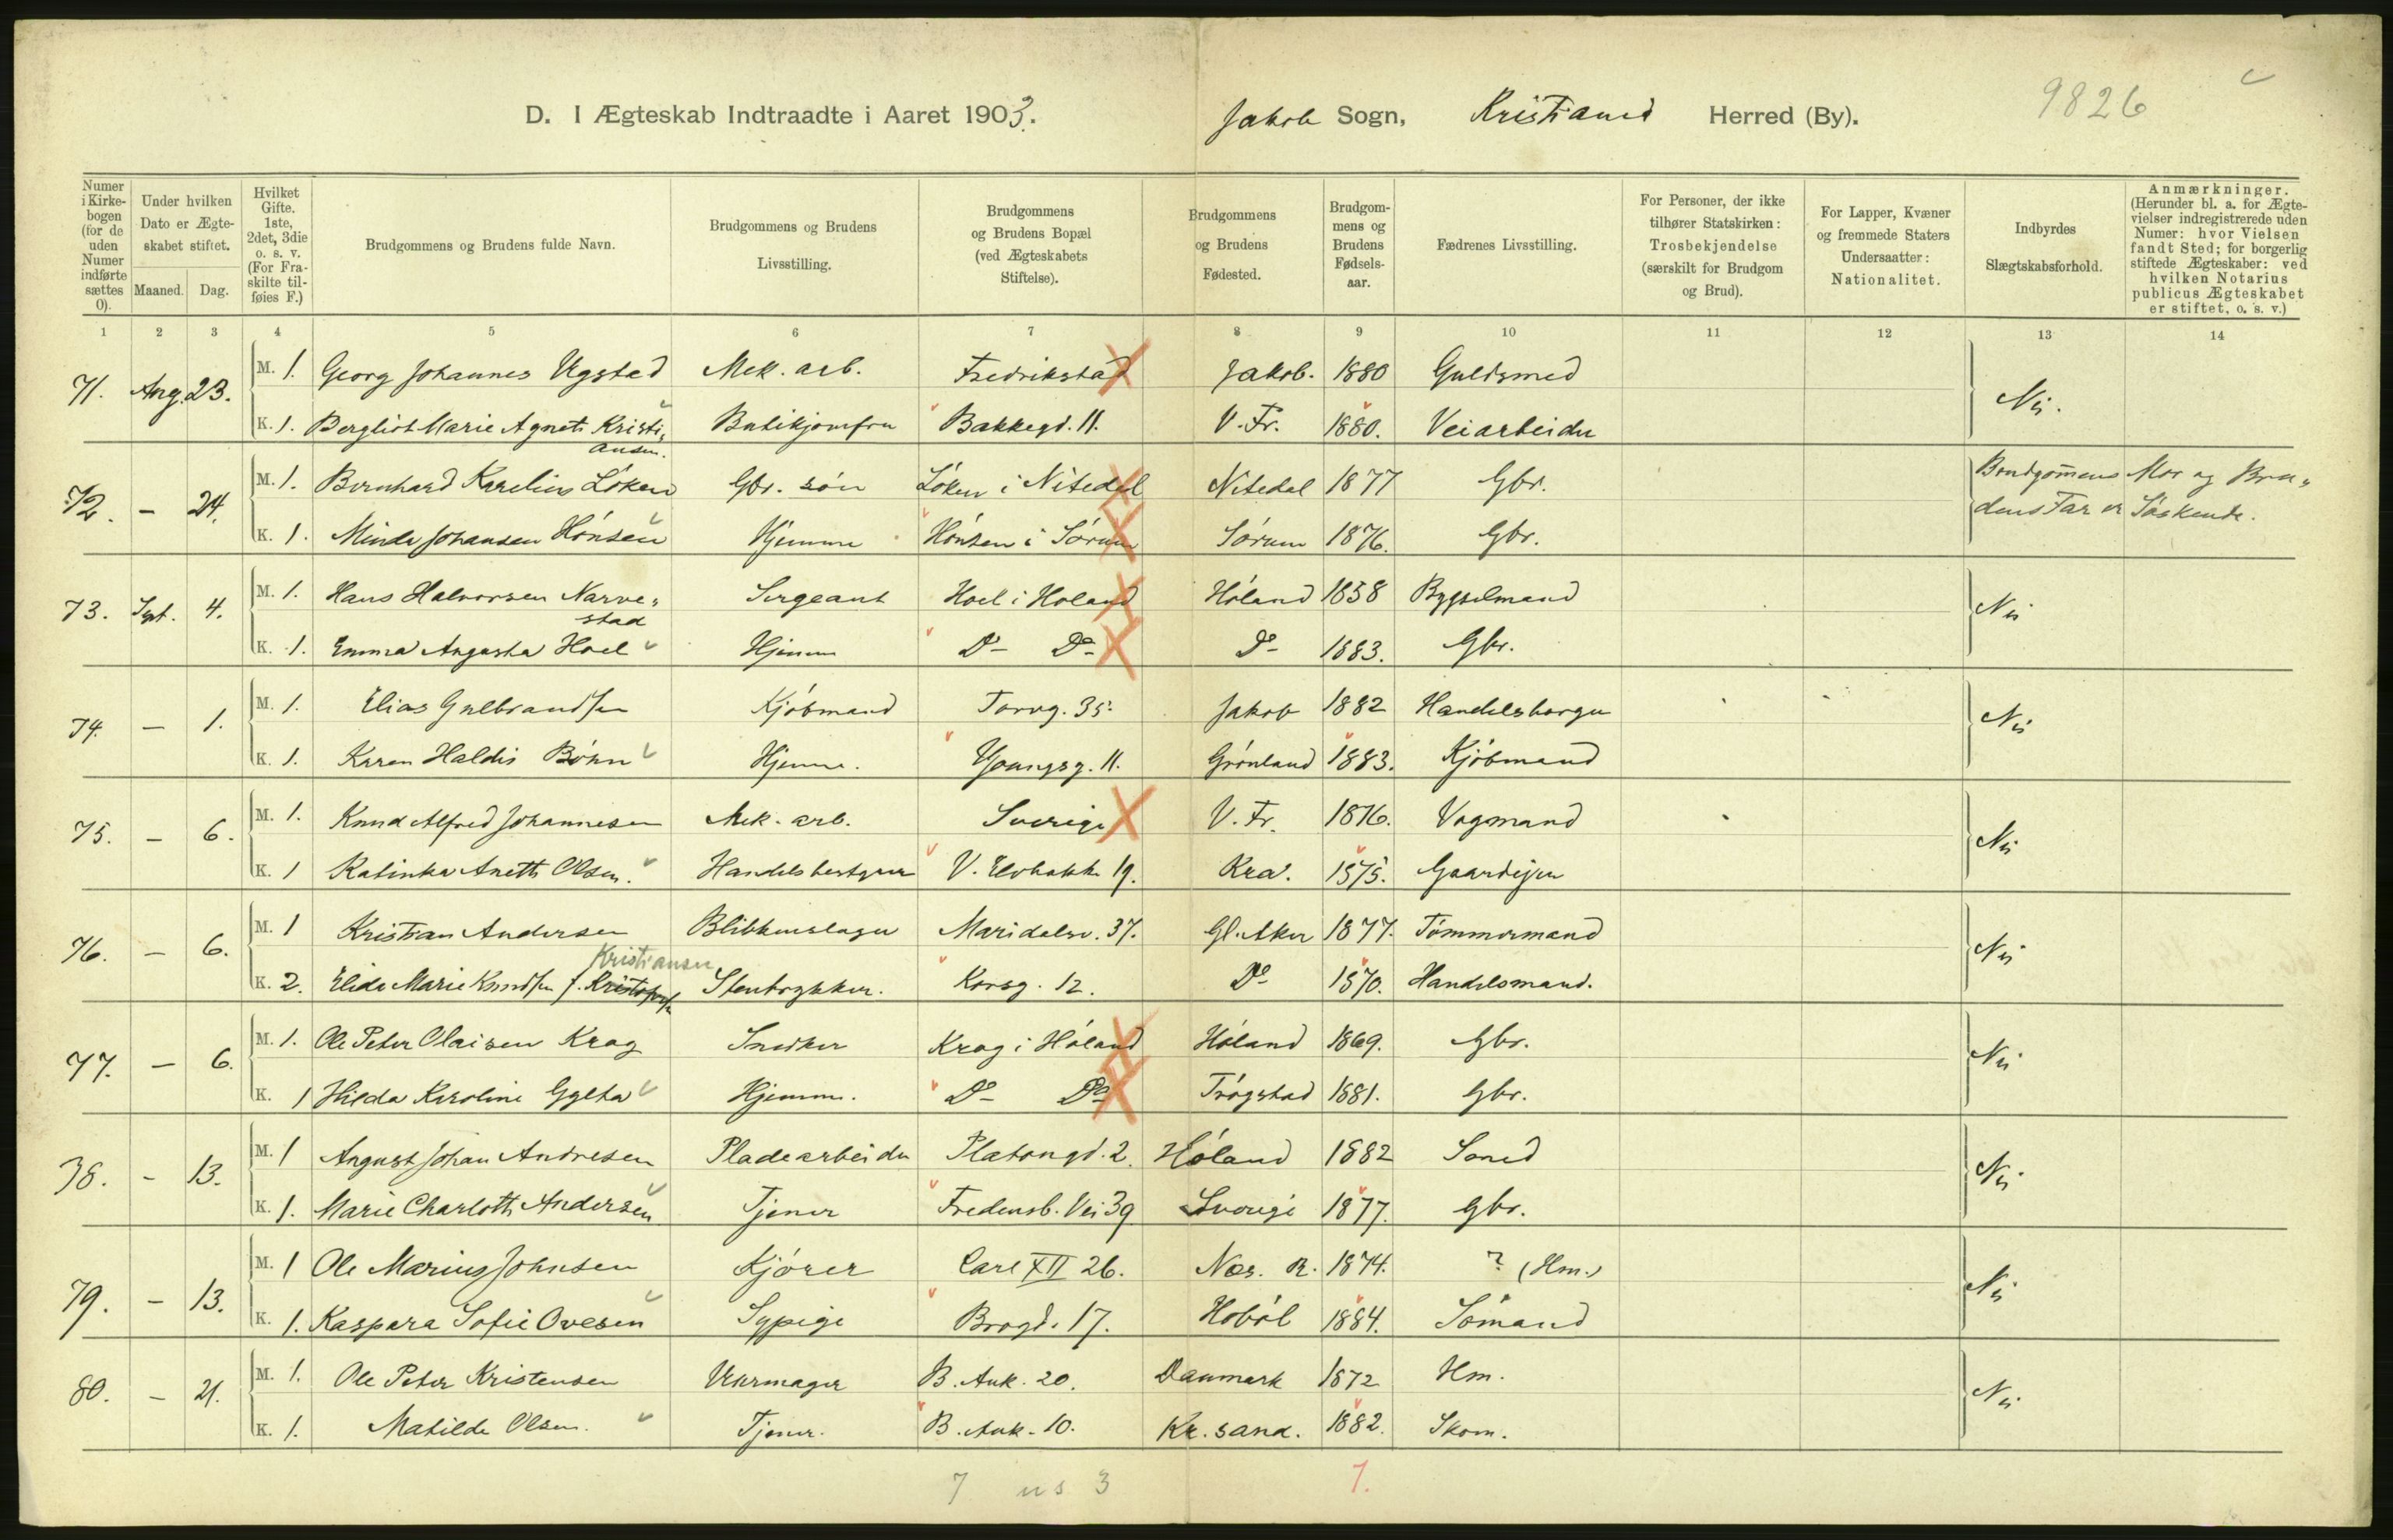 9826
D. I Ægteskab Indtraadte i Aaret 1903. Jakob Sogn, Kristiania Herred (By).
Numer i Kirke-bogen (for de uden Numer indførte sættes 0).
Under hvilken Dato er Ægte-skabet stiftet.
Maaned. Dag.
Hvilket Gifte. 1ste, 2det, 3die o. s. v. (For Fra-skilte til-føies F.)
Brudgommens og Brudens fulde Navn.
Brudgommens og Brudens Livsstilling.
Brudgommens og Brudens Bopæl (ved Ægteskabets Stiftelse).
Brudgommens og Brudens Fødested.
Brudgom-mens og Brudens Fødsels-aar.
Fædrenes Livsstilling.
For Personer, der ikke tilhører Statskirken: Trosbekjendelse (særskilt for Brudgom og Brud).
For Lapper, Kvæner og fremmede Staters Undersaatter: Nationalitet.
Indbyrdes Slægtskabsforhold.
Anmærkninger. (Herunder bl. a. for Ægte-vielser indregistrerede uden Numer: hvor Vielsen fandt Sted; for borgerlig stiftede Ægteskaber: ved hvilken Notarius publicus Ægteskabet er stiftet, o. s. v.)
1 2 3 4 5 6 7 8 9 10 11 12 13 14
71. Aug. 23. M. 1. Georg Johannes Ugstad Mek. arb. Fredrikstad Jakob. 1880 Guldsmed Nei.
K. 1. Bergliot Marie Agnete Kristi„ Butikjomfru Bakkegd. 11. V. Fr. 1880. Veiarbeider
ansen.
72. – 24. M. 1. Bernhard Karelius Löken Gbr. sön Löken i Nitedal Nitedal 1877 Gbr. Brudgom̄ens Mor og Bru„
K. 1. Minda Johansen Hónsen Hjemme Hónsen i Sörum Sörum 1876. Gbr. dens Far er Söskende.
73. Sept. 4. M. 1. Hans Halvorsen Narve„ Sergeant Hoel i Höland Höland 1858 Bygselmand Nei
stad
K. 1. Emma Augusta Hoel Hjemme Do Do Do 1883. Gbr.
74. – 1. M. 1. Elias Gulbrandsen Kjöbmand Torvg. 35. Jakob 1882 Handelsborger Nei
K. 1. Karen Haldis Böhn Hjemme. Youngsg. 11. Grönland 1883. Kjöbmand
75. – 6. M. 1. Knud Alfred Johannesen Mek. arb. Sverige V. Fr. 1876. Vognmand Nei
K. 1 Katinka Anette Olsen. Handelsbestyrer V. Elvbakke 19. Kra. 1875. Gaardejer
76. – 6. M. 1 Kristian Andersen Blikkenslager Maridalsv. 37. Gl. Aker 1877. Tömmermand Nei
Kristiansen
K. 2. Elida Marie Knudsen f. Kristofersen Stentrykker. Korsg. 12. Do 1870. Handelsmand.
77. – 6. M. 1. Ole Peter Olaisen Krog Snedker Krog i Höland Höland 1869. Gbr. Nei
K. 1 Hilda Karoline Gylta Hjemme. Do Do Trögstad 1881. Gbr.
38. – 13. M. 1 August Johan Andresen Pladearbeider Platougd. 2. Höland 1882 Smed Nei
K. 1. Marie Charlotte Andersen Tjener Fredensb. Vei 39 Sverige 1877. Gbr.
79. – 13. M. 1 Ole Marius Johnsen Kjörer Carl XII 26. Nes. R. 1874. ? (Hm.) Nei
K. 1. Kaspara Sofie Ovesen Sypige Brogd. 17. Hoböl 1884. Sömand
80. – 21. M. 1. Ole Peter Kristensen Uhrmager B. Ank. 20. Danmark 1872 Hm. Nei
K. 1. Matilde Olsen. Tjener. B. Ank. 10. Kr. sand. 1882. Skom.
7 us 3 1.